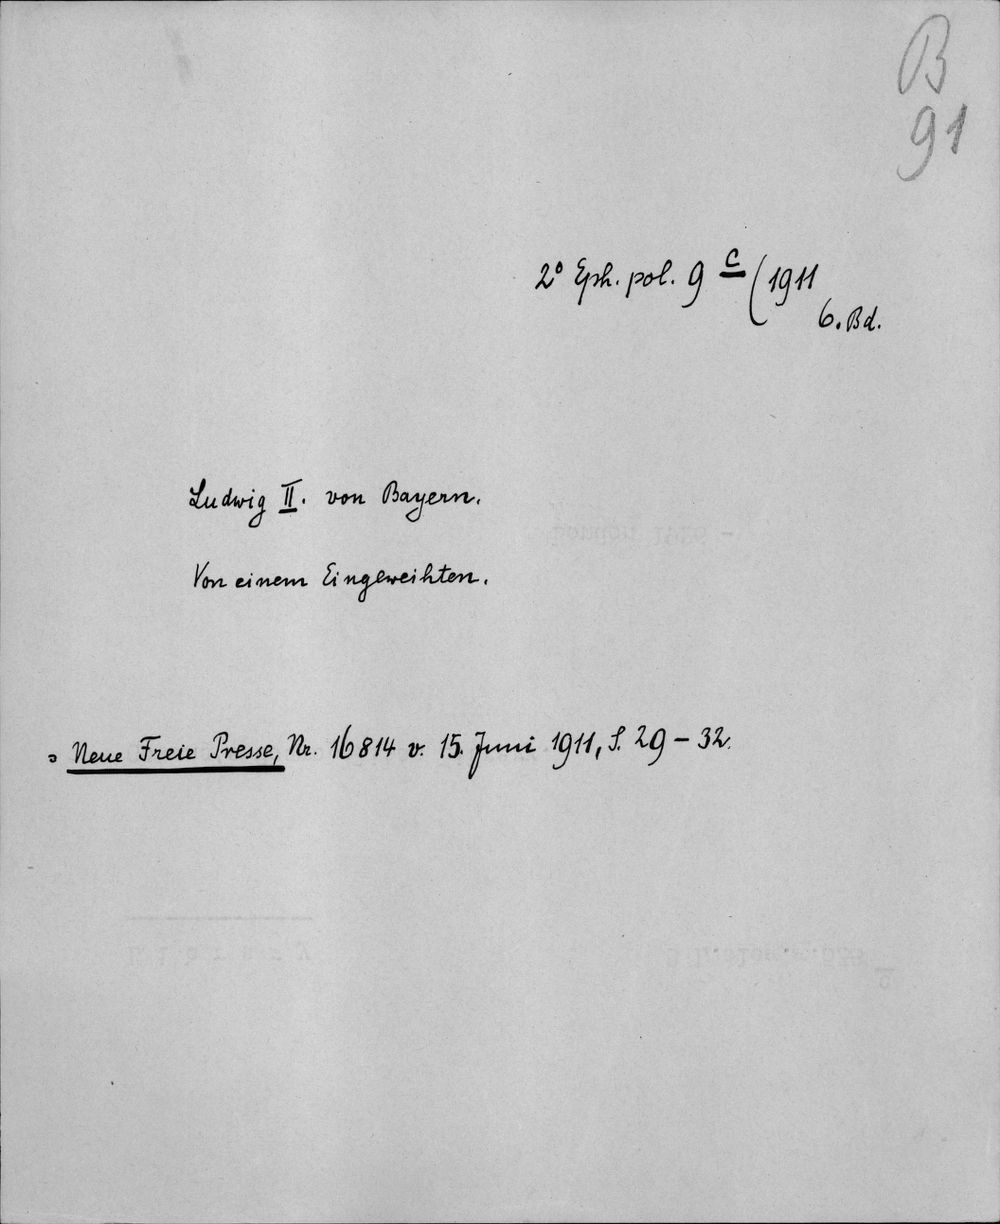 B
91
2° Eph. pol. 9 c (1911
6. Bd.
Ludwig II. von Bayern.
Von einem Eingeweihten.
Neue Freie Presse, Nr. 16814 v. 15. Juni 1911, S. 29 – 32.